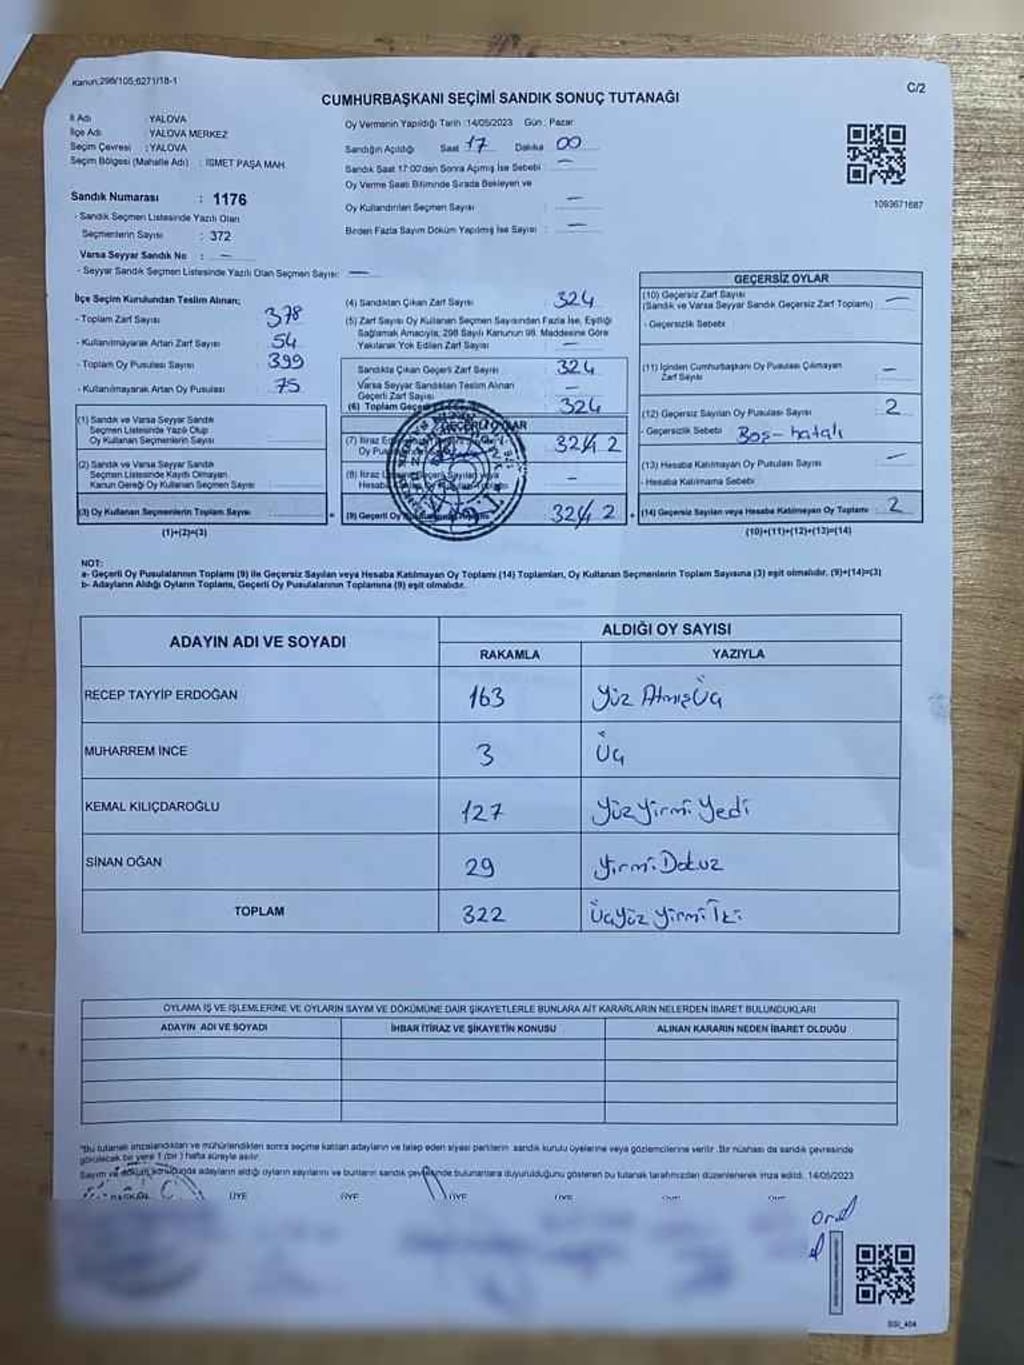 Kanun:298/105,6271/18-1
C/2
CUMHURBAŞKANI SEÇİMİ SANDIK SONUÇ TUTANAĞI
İl Adı : YALOVA
İlçe Adı : YALOVA MERKEZ
Seçim Çevresi : YALOVA
Seçim Bölgesi (Mahalle Adı) : İSMET PAŞA MAH.
Sandık Numarası : 1176
- Sandık Seçmen Listesinde Yazılı Olan
Seçmenlerin Sayısı : 372
Varsa Seyyar Sandık No : —
- Seyyar Sandık Seçmen Listesinde Yazılı Olan Seçmen Sayısı: —
Oy Vermenin Yapıldığı Tarih :14/05/2023 Gün : Pazar
Sandığın Açıldığı Saat 17 Dakika 00
Sandık Saat 17:00'den Sonra Açımış İse Sebebi : —
Oy Verme Saati Bitiminde Sırada Bekleyen ve
Oy Kullandırılan Seçmen Sayısı : —
Birden Fazla Sayım Döküm Yapılmış İse Sayısı : —
1093671687
İlçe Seçim Kurulundan Teslim Alınan;
- Toplam Zarf Sayısı 378
- Kullanılmayarak Artan Zarf Sayısı 54
- Toplam Oy Pusulası Sayısı 399
- Kullanılmayarak Artan Oy Pusulası 75
(1) Sandık ve Varsa Seyyar Sandık
Seçmen Listesinde Yazılı Olup
Oy Kullanan Seçmenlerin Sayısı
(2) Sandık ve Varsa Seyyar Sandık
Seçmen Listesinde Kayıtlı Olmayan
Kanun Gereği Oy Kullanan Seçmen Sayısı
(3) Oy Kullanan Seçmenlerin Toplam Sayısı
(1)+(2)=(3)
(4) Sandıktan Çıkan Zarf Sayısı 324
(5) Zarf Sayısı Oy Kullanan Seçmen Sayısından Fazla İse, Eşitliği
Sağlamak Amacıyla, 298 Sayılı Kanunun 98. Maddesine Göre
Yakılarak Yok Edilen Zarf Sayısı —
Sandıkta Çıkan Geçerli Zarf Sayısı 324
Varsa Seyyar Sandıktan Teslim Alınan
Geçerli Zarf Sayısı —
(6) Toplam Geçerli 324
GEÇERLİ OYLAR
(7) İtiraz
Oy 324 2
(8) İtiraz
Hesaba —
(9) Geçerli Oy 324 2
=
+
GEÇERSİZ OYLAR
(10) Geçersiz Zarf Sayısı
(Sandık ve Varsa Seyyar Sandık Geçersiz Zarf Toplamı) —
- Geçersizlik Sebebi :
(11) İçinden Cumhurbaşkanı Oy Pusulası Çıkmayan
Zarf Sayısı —
(12) Geçersiz Sayılan Oy Pusulası Sayısı 2
- Geçersizlik Sebebi Boş-hatalı
(13) Hesaba Katılmayan Oy Pusulası Sayısı —
- Hesaba Katılmama Sebebi
(14) Geçersiz Sayılan veya Hesaba Katılmayan Oy Toplamı 2
(10)+(11)+(12)+(13)=(14)
NOT:
a- Geçerli Oy Pusulalarının Toplamı (9) ile Geçersiz Sayılan veya Hesaba Katılmayan Oy Toplamı (14) Toplamları, Oy Kullanan Seçmenlerin Toplam Sayısına (3) eşit olmalıdır. (9)+(14)=(3)
b- Adayların Aldığı Oyların Toplamı, Geçerli Oy Pusulalarının Toplamına (9) eşit olmalıdır.
ADAYIN ADI VE SOYADI
ALDIĞI OY SAYISI
RAKAMLA YAZIYLA
RECEP TAYYİP ERDOĞAN 163 Yüz AtmışÜç
MUHARREM İNCE 3 Üç
KEMAL KILIÇDAROĞLU 127 YüzYirmi Yedi
SİNAN OĞAN 29 Yirmi Dokuz
TOPLAM 322 Üçyüz Yirmi İki
OYLAMA İŞ VE İŞLEMLERİNE VE OYLARIN SAYIM VE DÖKÜMÜNE DAİR ŞİKAYETLERLE BUNLARA AİT KARARLARIN NELERDEN İBARET BULUNDUKLARI
ADAYIN ADI VE SOYADI İHBAR İTİRAZ VE ŞİKAYETİN KONUSU ALINAN KARARIN NEDEN İBARET OLDUĞU
*Bu tutanak imzalandıktan ve mühürlendikten sonra seçime katılan adayların ve talep eden siyasi partilerin sandık kurulu üyelerine veya gözlemcilerine verilir. Bir nüshası da sandık çevresinde
görülecek bir yere 1 (bir) hafta süreyle asılır.
Sayım ve döküm sonucunda adayların aldığı oyların sayılarını ve bunların sandık çevresinde bulunanlara duyurulduğunu gösteren bu tutanak tarafımızdan düzenlenerek imza edildi. 14/05/2023
BAŞKAN ÜYE ÜYE ÜYE ÜYE